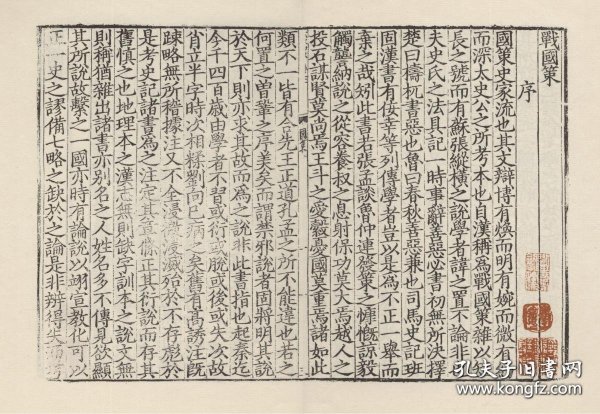 戰國策
序
國策史家流也其文辯博有煥而明有婉而微有
而深太史公之所考本也自漢稱為戰國策雜以短
長之號而有蘇張縱横之說學者諱之置不論非
夫史氏之法具記一時事辭善惡必書初無所決擇
楚曰檮杌書惡也魯曰春秋善惡兼也司馬史記班
固漢書有佞幸等列傳學者豈以是為不正一舉而
棄之哉矧此書若張孟談魯仲連發策之慷慨諒毅
觸讋納說之從容養叔之息射保功莫大焉越人之
投石謀賢莫尚焉王斗之愛縠憂國莫重焉諸如此
類不一皆有合先王正道孔孟之所不能違也若之
何置之曾鞏之序美矣而謂禁邪說者固將明其說
於天下則亦求其故而為之說非此書指也起秦迄
今千四百歲由學者不習或衍或脫或後或失次故
肖立半字時次相糅劉向已病之矣舊有高誘注既
疎略無所稽據注又不全浸微浸滅殆於不存彪於
是考史記諸書為之注定其章條正其衍說而存其
舊慎之也地理本之漢志無則缺字訓本之說文無
則稱猶雜出諸書亦別名之人姓名多不傳見欲顯
其所說故繫之一國亦時有論說以翊宣教化可以
正一史之謬備七略之缺於之論是非辨得失
孔夫子旧书网
www.kongfz.com